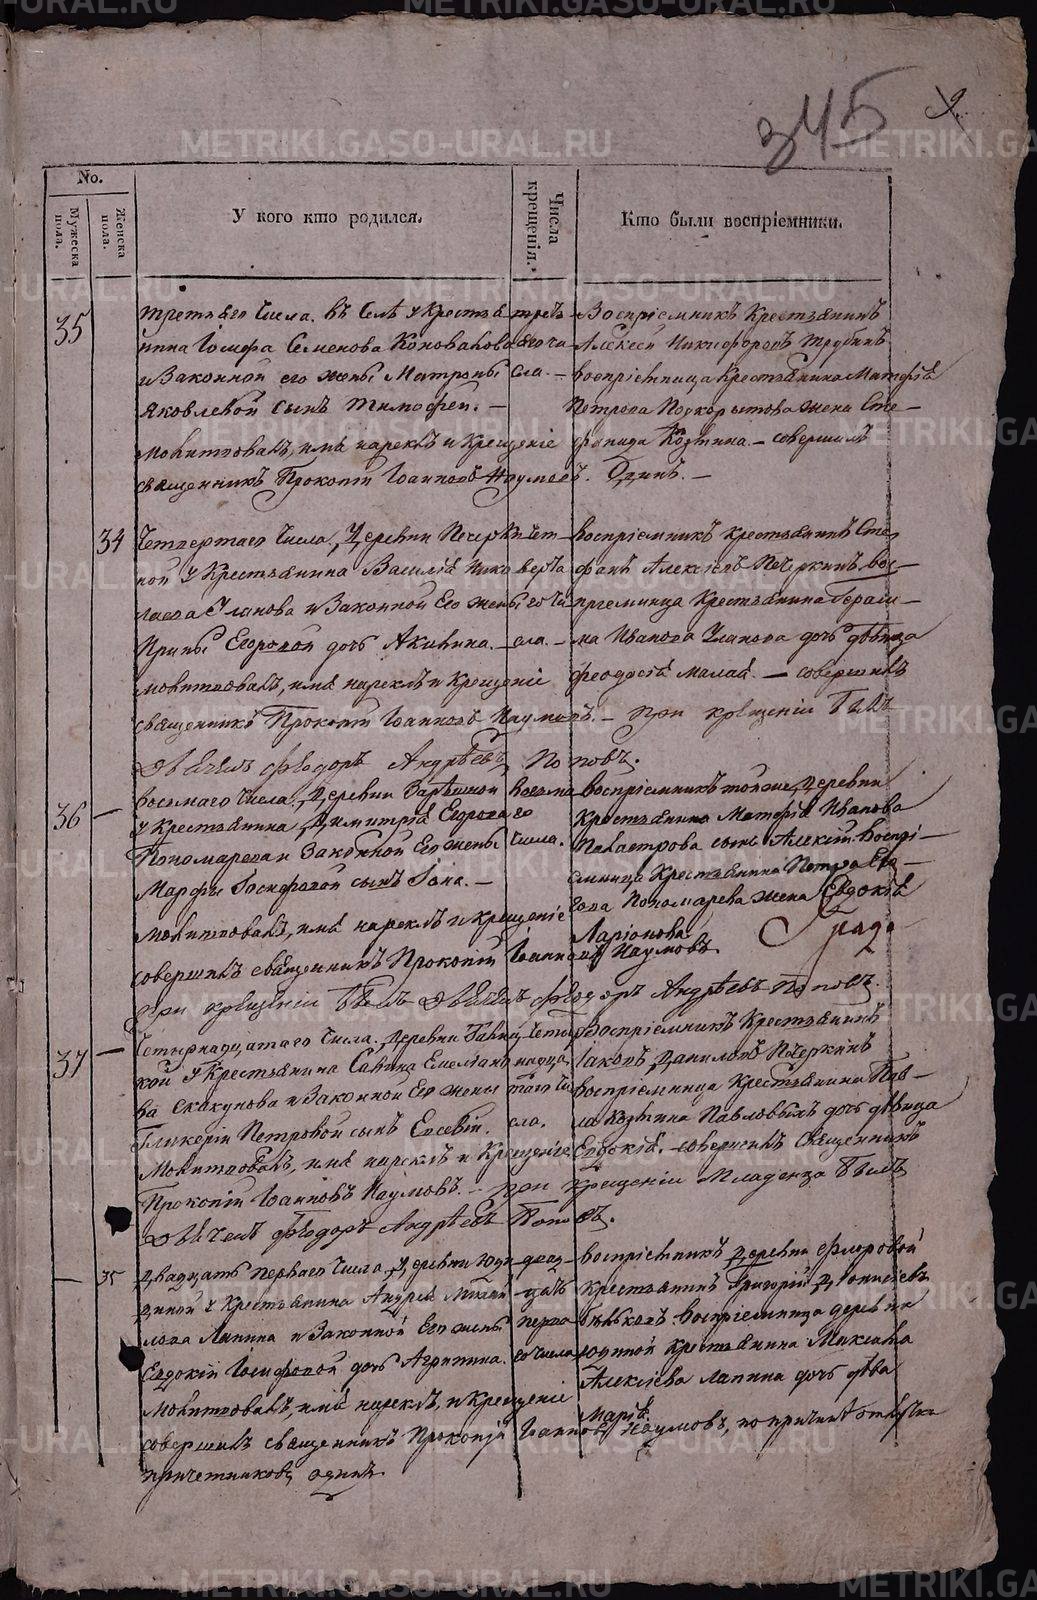 345
9
No.
Мужеска пола.
Женска пола.
У кого кто родился.
Числа крещенія.
Кто были воспріемники.
35
третьяго числа. въ Селѣ у Крестья
нина Іосифа Семенова Коновалова
и Законной его жены Матроны
Яковлевой сынъ Тимофей. —
Молитвовалъ, имя нареклъ и Крещеніе
священникъ Прокопій Іоанновъ Наумовъ. Одинъ. —
треть
яго чи
сла. —
Воспріемникъ Крестьянинъ
Алексей Никифоровъ Трубинъ
воспріемница Крестьянина Матфея
Петрова Подкорытова жена Сте —
фанида Козмина. — совершилъ
34
Четвертаго числа, Деревни Печерки
ной у Крестьянина Василія Нико
лаева Уланова и Законной Его жены
Ирины Егоровой дочь Акилина. —
молитвовалъ, имя нареклъ и Крещеніе
священникъ Прокопій Іоанновъ Наумовъ. — при крещеніи былъ
Дьячекъ Феодоръ Андрѣевъ Поповъ.
чет —
верта
го чи
сла. —
воспріемникъ крестьянинъ Сте
фанъ Алексіевъ Печеркинъ вос —
пріемница Крестьянина Гераси —
ма Иванова Уланова дочь дѣвица
феодосья малая. — совершилъ
36
восьмаго числа, Деревни
у Крестьянина, Димитрія Егорова
Пономарева и Законной Его жены
Марфы Іосифовой сынъ Іона. —
молитвовалъ, имя нареклъ и крещеніе
совершилъ священникъ Прокопій Іоанновъ Наумовъ.
при крещеніи былъ Дьячекъ Феодоръ Андрѣевъ Поповъ.
восьма
го
числа.
воспріемникъ тойже, Деревни
Крестьянина Матфія Иванова
сынъ Алексій. Воспрі —
емница Крестьянина Петра Его —
рова Пономарева жена Евдокія
Ларіонова
37
Четырнадцатаго числа. Деревни
кой у Крестьянина Савина Емельяно
ва Скакунова и Законной Его жены
Гликеріи Петровой сынъ Евсевій.
Молитвовалъ, имя нареклъ и Крещеніе
Прокопій Іоанновъ Наумовъ. — при крещеніи Младенца былъ
Дьячекъ Феодоръ Андрѣевъ Поповъ.
четыр
надца
таго чи
сло.
Воспріемникъ Крестьянинъ
Іаковъ, Даниловъ Печеркинъ
воспріемница Крестьянина Пав —
ла Козмина Павловыхъ дочь дѣвица
Евдокія. — совершилъ Священникъ
35
Двадцать перваго числа, Деревни Юди
диной у Крестьянина Андрея Михай
лова Лапина и Законной Его жены
Евдокіи Іосифовой дочь Агрипина.
Молитвовалъ, имя нареклъ, и Крещеніе
совершилъ священникъ Прокопій Іоанновъ Наумовъ, по причинѣ отлучки
причетниковъ, одинъ.
двад —
цать
перва
го числа
воспріемникъ Деревни Флоровой
крестьянинъ Григорій, Діонисіевъ
Бѣньковъ воспріемница деревни
Юдиной крестьянина Максима
Алексіева Лапина дочь дѣва
Марія.